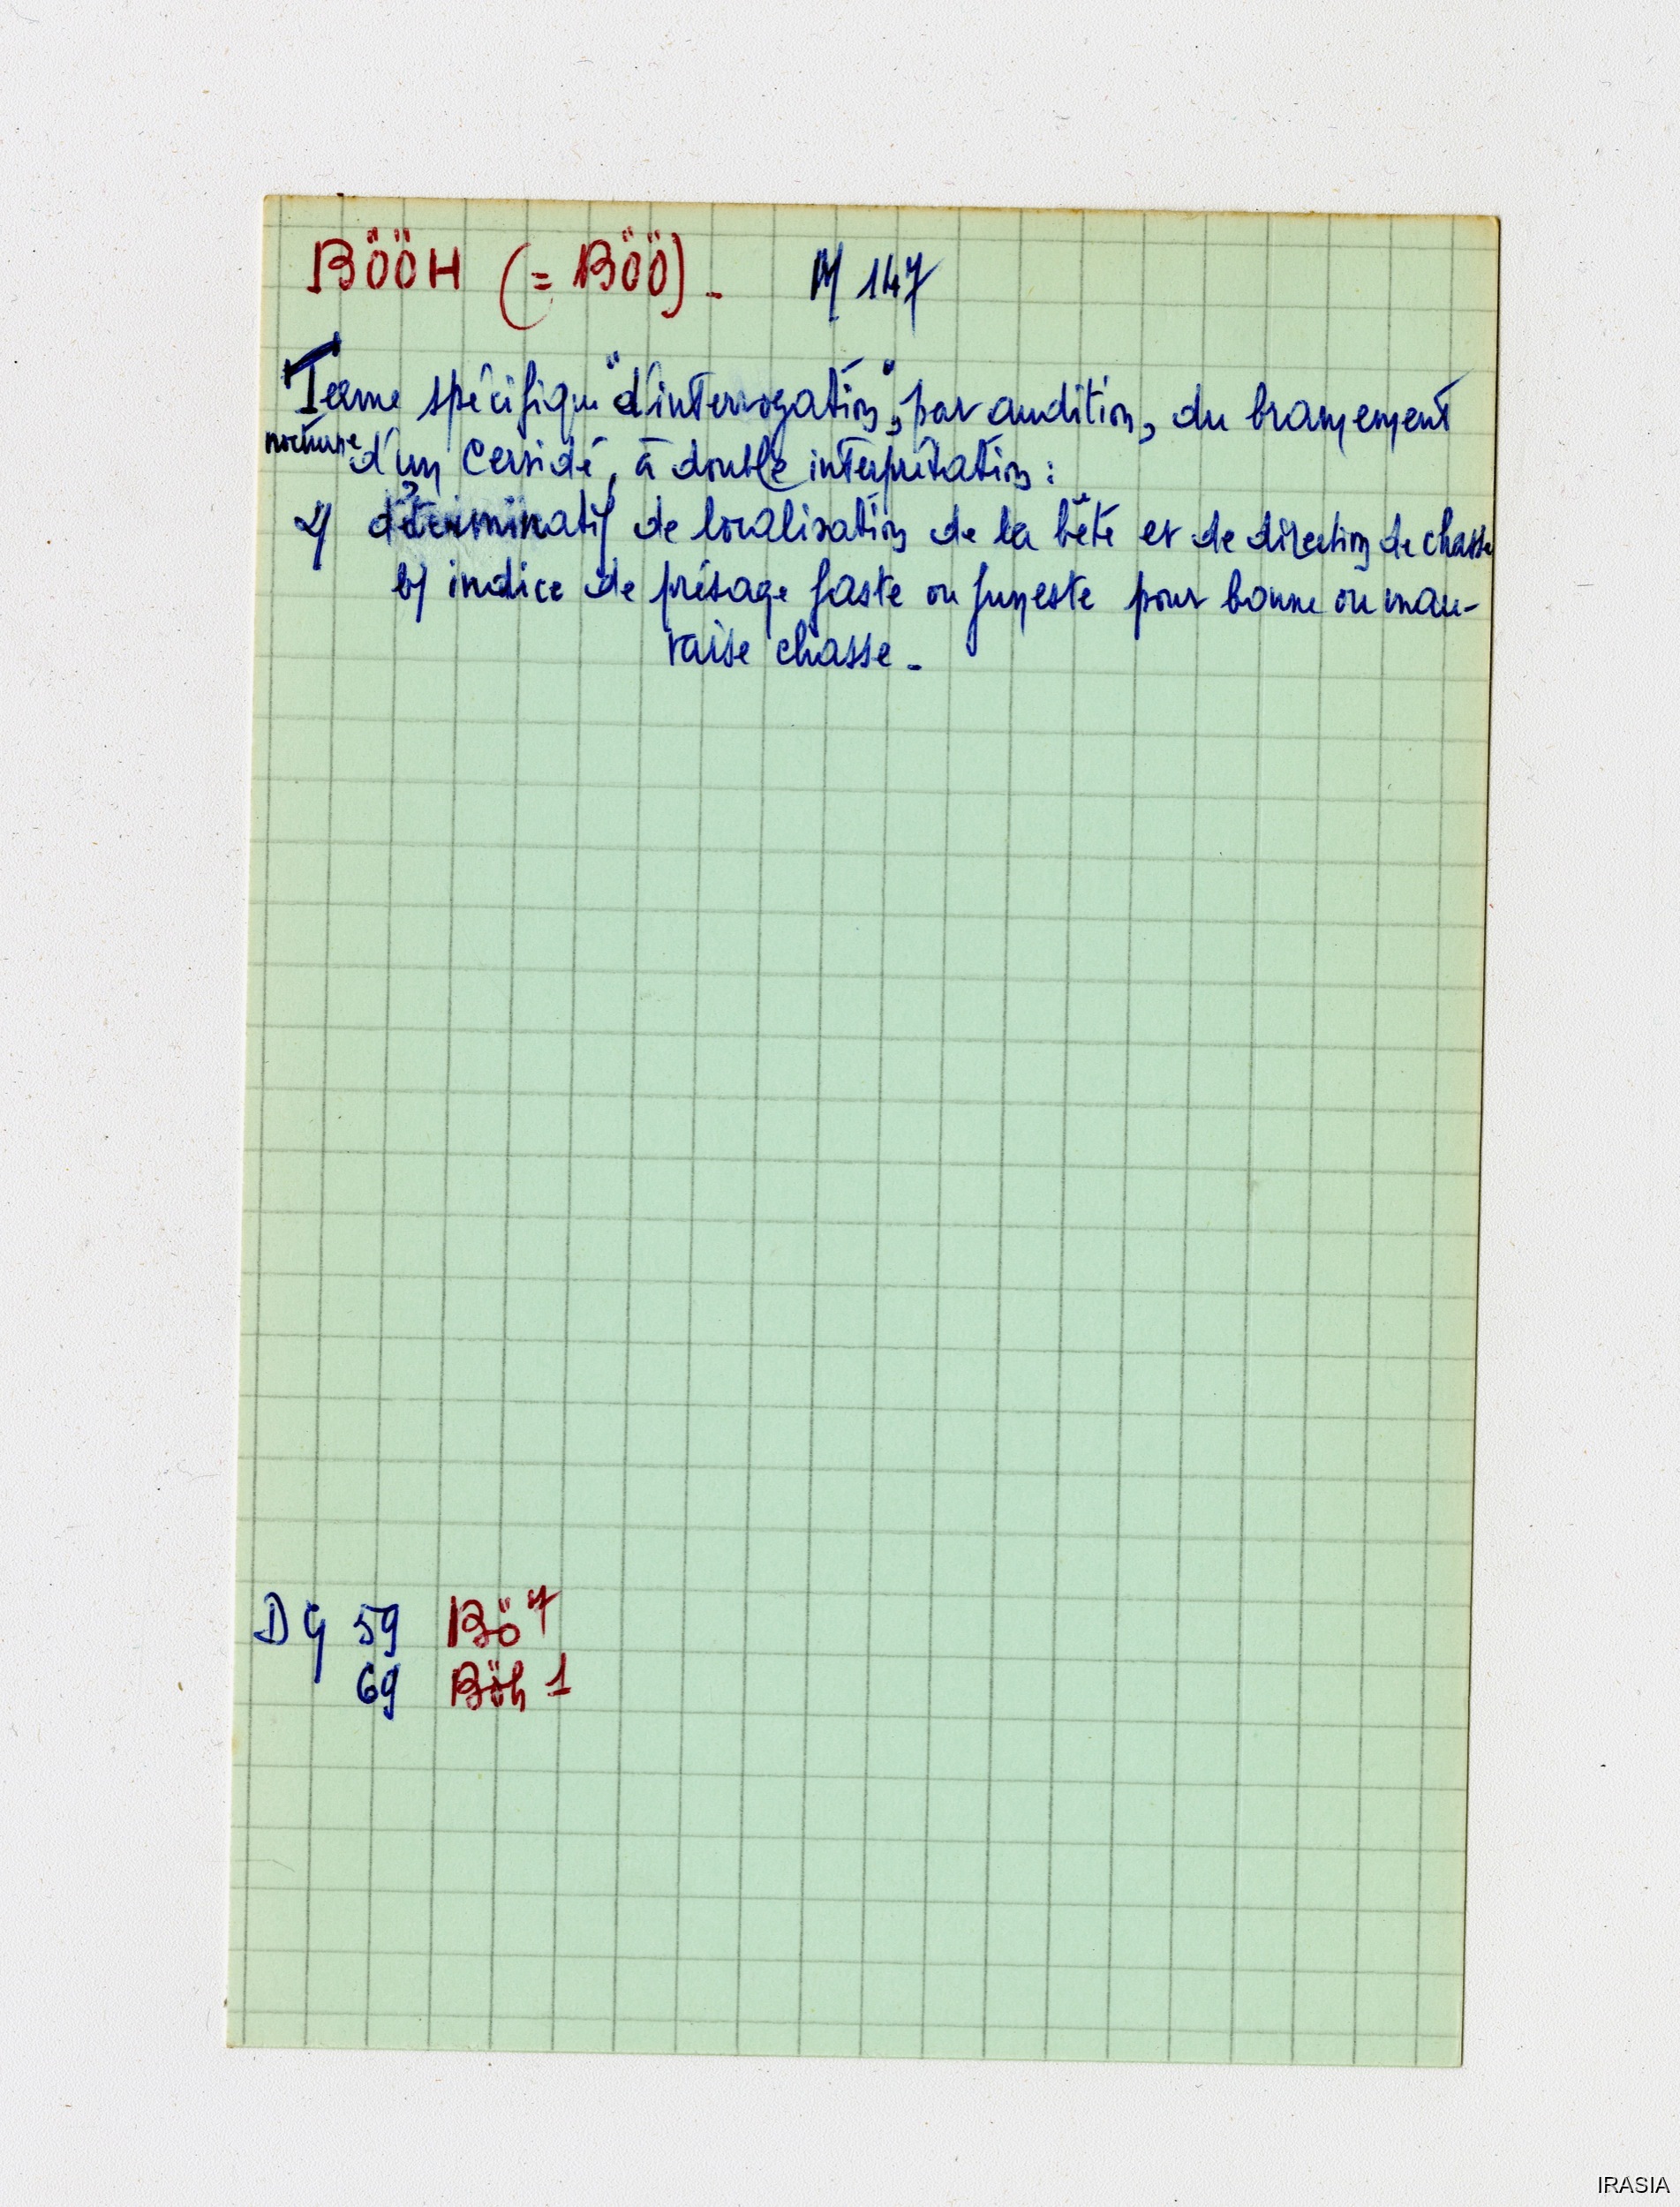 BÖÖH (= BÖÖ). M 147
Terme spécifique "d'interrogation", par audition, du bramement
nocturne d'un Cervidé, à double interprétation :
a/ déterminatif de localisation de la bête et de direction de chasse
b/ indice de présage faste ou funeste pour bonne ou mau-
vaise chasse.
DG 59 Bö 7
69 Böh 1
IRASIA